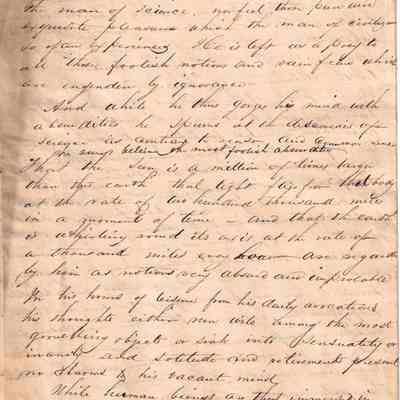 the man of science, nor feel those pure and
exquisite pleasures which the man of civiliza-
so often experiences He is left as a prey to
all those foolish notions and vain fears which
are engendered by ignorance.
And while he thus gorges his mind with
absurdities he spurns at the discoveries of
science as contrary to reason and common sense
the most foolish absurdities
That the Sun is a million of times larger
than the earth that light flies from that body
at the rate of two hundred thousand miles
in a moment of time — and that the earth
is whirling round its axis at the rate of
a thousand miles every hour — are regarded
by him as notions very absurd and improbable
In his hours of leisure from his daily avocations
his thoughts either run wild among the most
grovelling objects or sink into Sensuality or
inanity and solitude and retirement present
no charms to his vacant mind
While human beings are thus immersed in